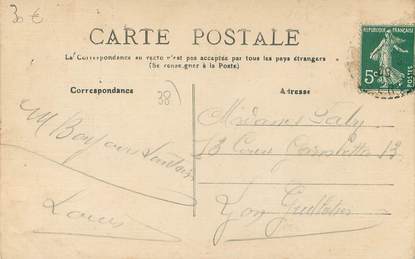 30 €
CARTE POSTALE
La Correspondance au recto n'est pas acceptée par tous les pays étrangers
(Se renseigner à la Poste)
Correspondance
38)
Adresse
RÉPUBLIQUE FRANÇAISE
5c
POSTES
Madame
13 Cours Gambetta 13
Lyon
Bonjour
Louis